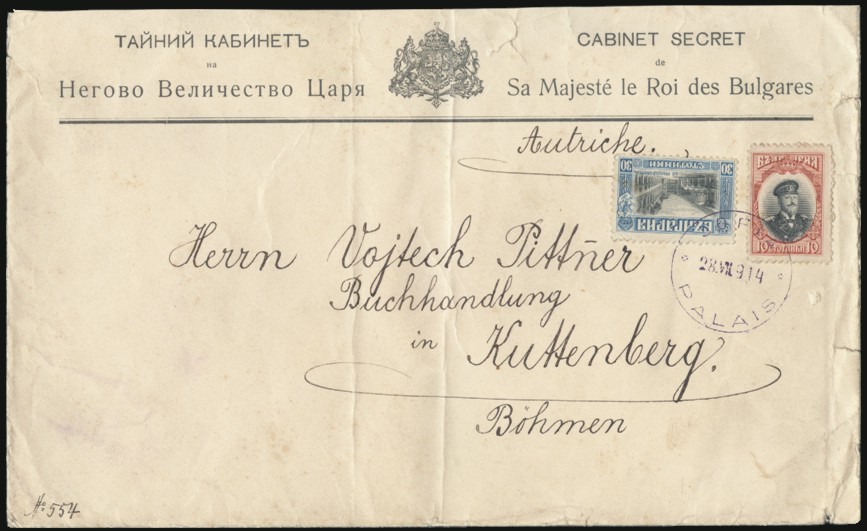 ТАЙНИЙ КАБИНЕТЪ
на
Негово Величество Царя
CABINET SECRET
de
Sa Majesté le Roi des Bulgares
Autriche.
30 СТОТИНКИ 30
БЪЛГАРИЯ
БЪЛГАРИЯ
10 10
28.VII.914
PALAIS
Herrn Vojtech Pittner
Buchhandlung
in Kuttenberg.
Böhmen
No 554